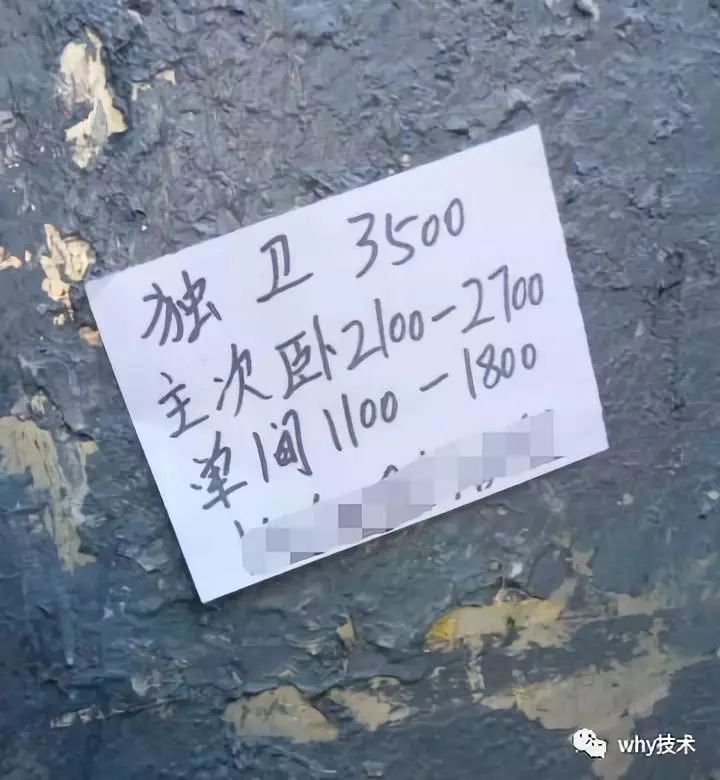 独卫 3500
主次卧2100-2700
单间1100-1800
why技术